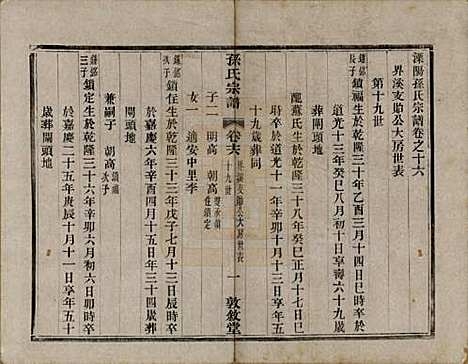 溧陽孫氏宗譜卷之十六
界溪支助公大房世表
第十九世
鎖福生於乾隆三十年乙酉三月十四
日卒於道光十三年癸巳八月初十日享壽六十九歲
葬開頭地
配蘇氏生於乾隆三十八年癸巳正月十七日巳
時卒於道光十一年辛卯十月十三日享年五
十九歲葬同
子二 明高 朝高
女一 適安中里李
孫氏宗譜
卷十六
十九世
一
敦敘堂
次子
鎖任生於乾隆三十三年戊子七月十三日辰時
卒於嘉慶六年辛酉十月十五日年三十四歲葬
兼嗣子 朝高
三子
鎖定生於乾隆三十六年辛卯六月初六日卯時卒
於嘉慶二十五年庚辰十月十一日年五十
歲葬開頭地